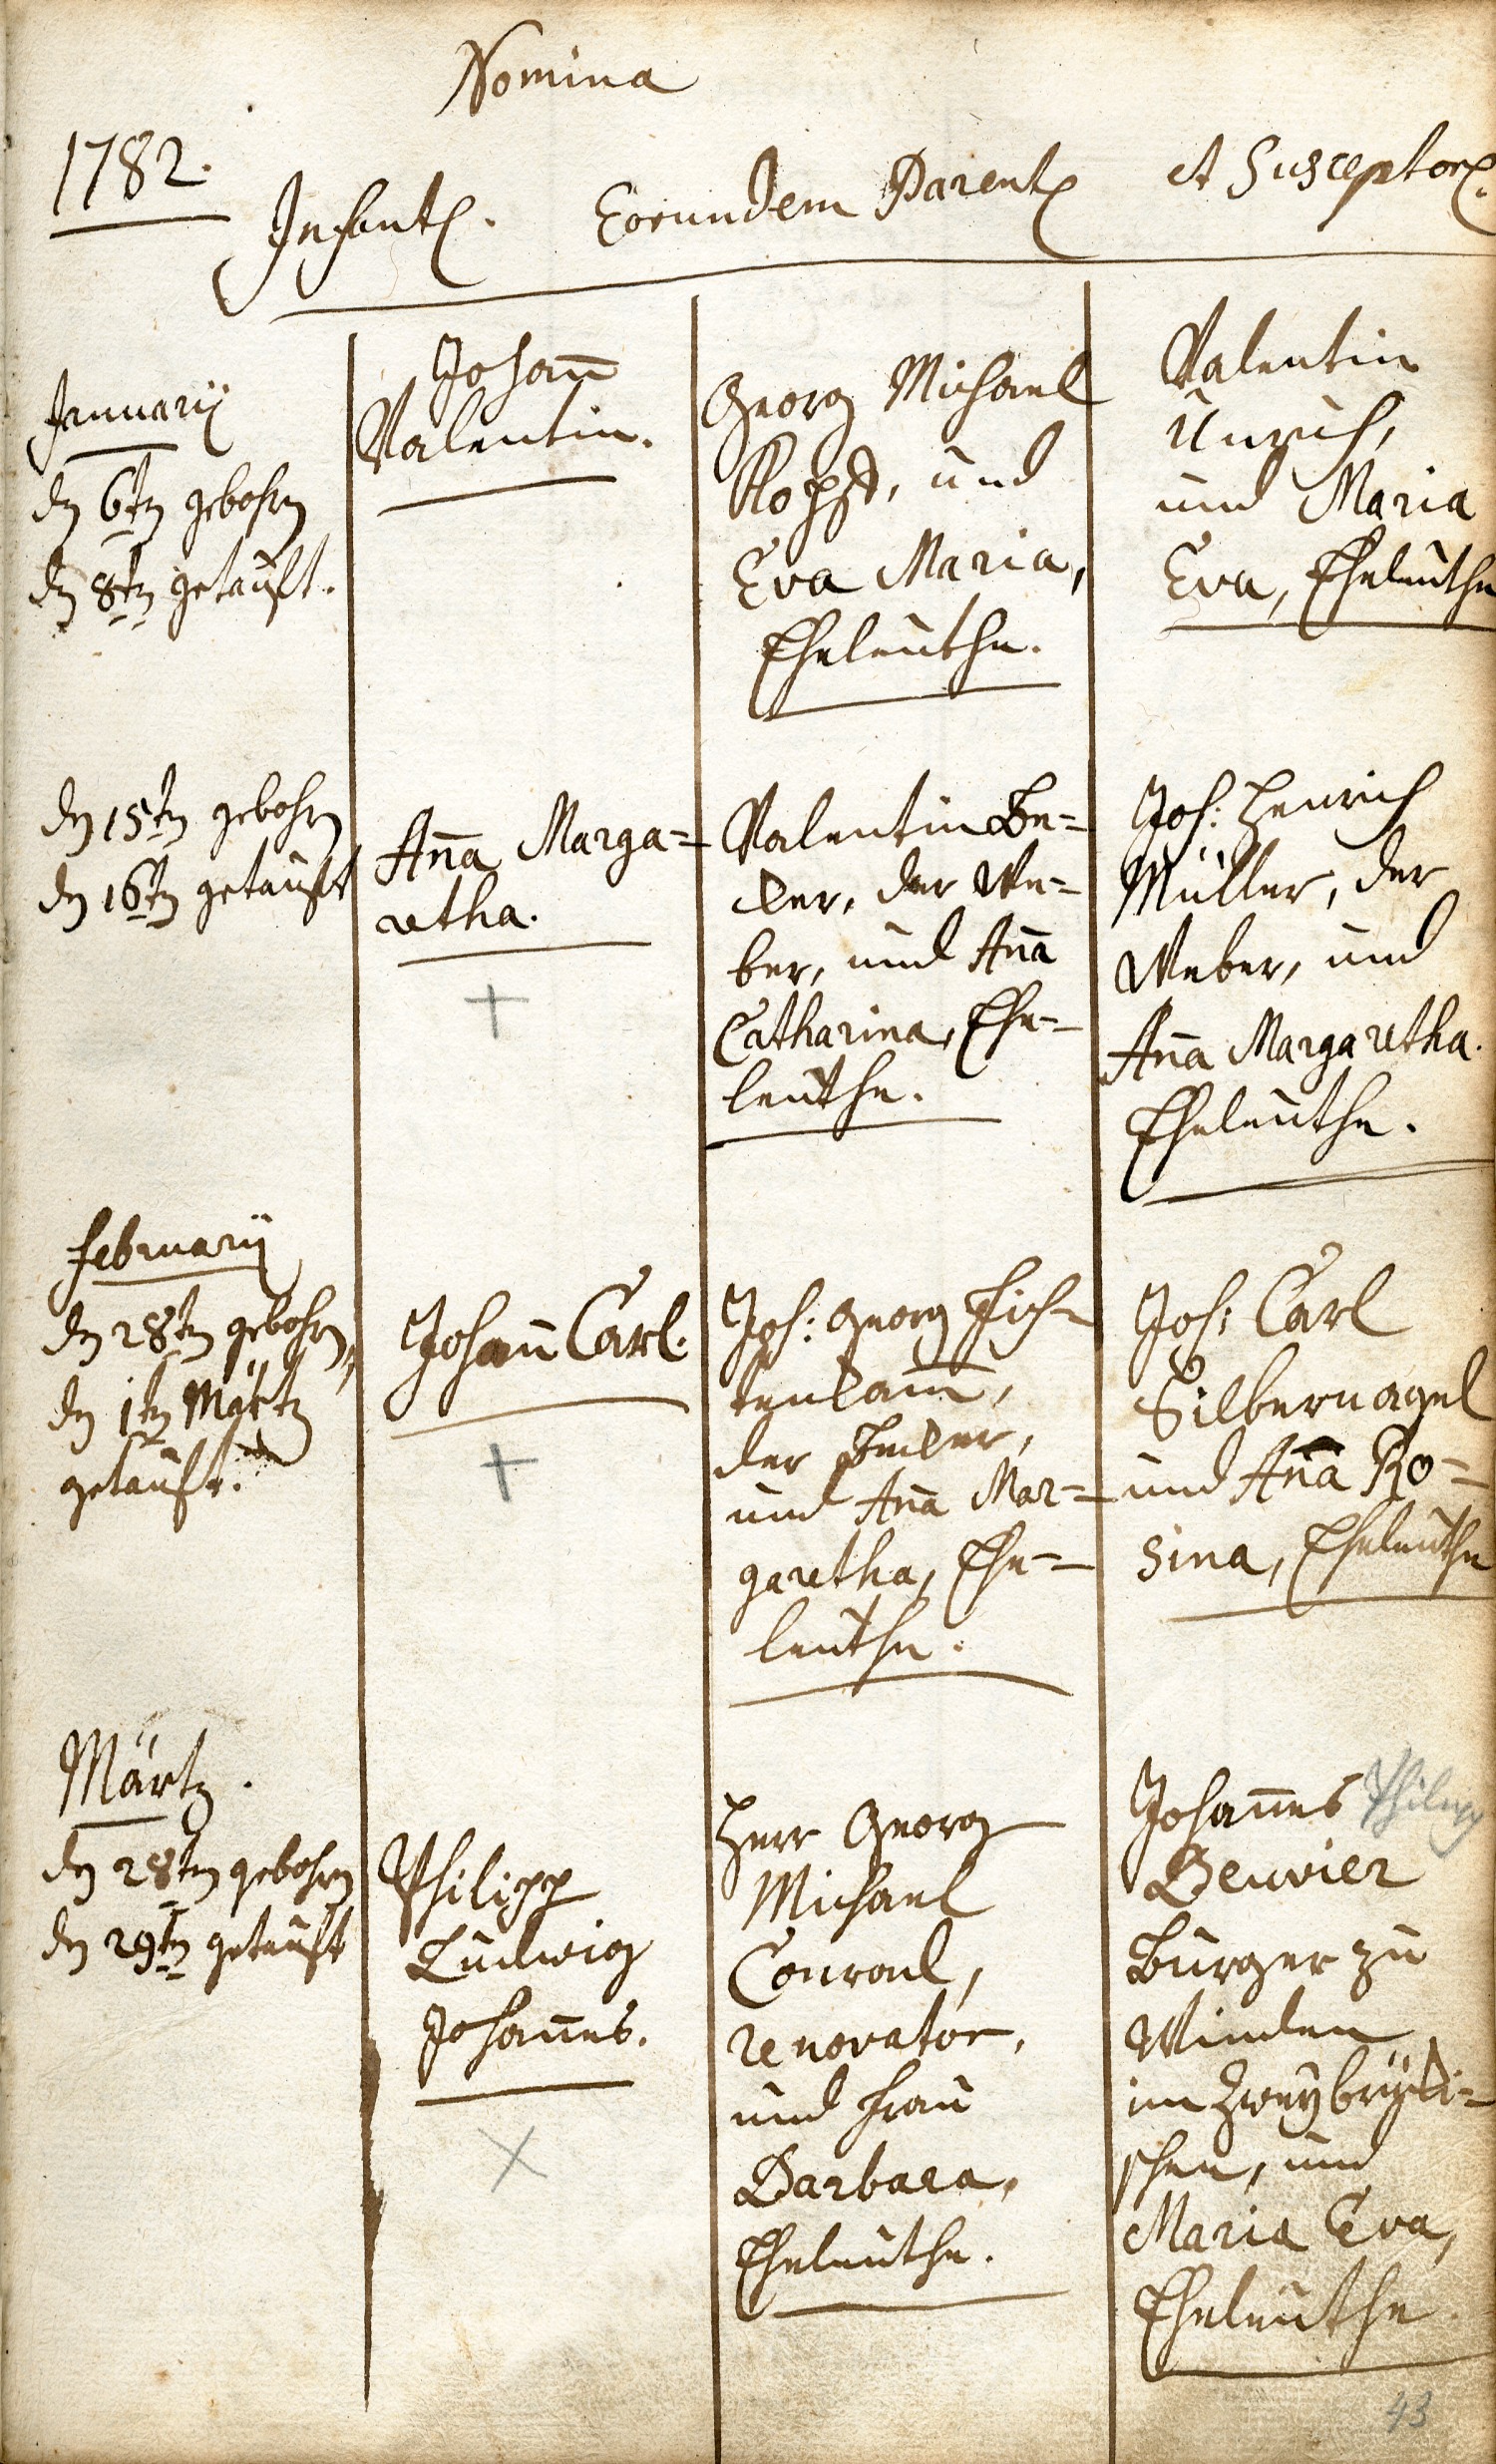 Nomina
1782.
Infant. Eorundem Parent et Susceptor.
Januarii
dn 6tn gebohrn
dn 8tn getauft.
Johan̄
Valentin.
Georg Michael
und
Eva Maria,
Eheleuthe.
Valentin
Unrich,
und Maria
Eva, Eheleuthe
dn 15tn gebohrn
dn 16tn getauft
An̄a Marga=
retha.
Valentin Be=
cker, der We=
ber, und An̄a
Catharina, Ehe=
leuthe.
Joh: Henrich
Müller, der
Weber, und
An̄a Margaretha.
Eheleuthe.
Februarii
dn 28tn gebohrn,
dn 1tn Märtz
getauft.
Johan̄ Carl.
Joh: Georg Fich=
tenkam̄,
der Becker,
und An̄a Mar=
garetha, Ehe=
leuthe.
Joh: Carl
Silbernagel
und An̄a Ro=
sina, Eheleuthe
Märtz.
dn 28tn gebohrn
dn 29tn getauft
Philipp
Ludwig
Johan̄es.
Herr Georg
Michael
Conrad,
renovator,
und Frau
Barbara,
Eheleuthe.
Johan̄es Philipp
Beuvier
Burger zu
Winden
im Zweybrücki=
schen, und
Maria Eva,
Eheleuthe.
43